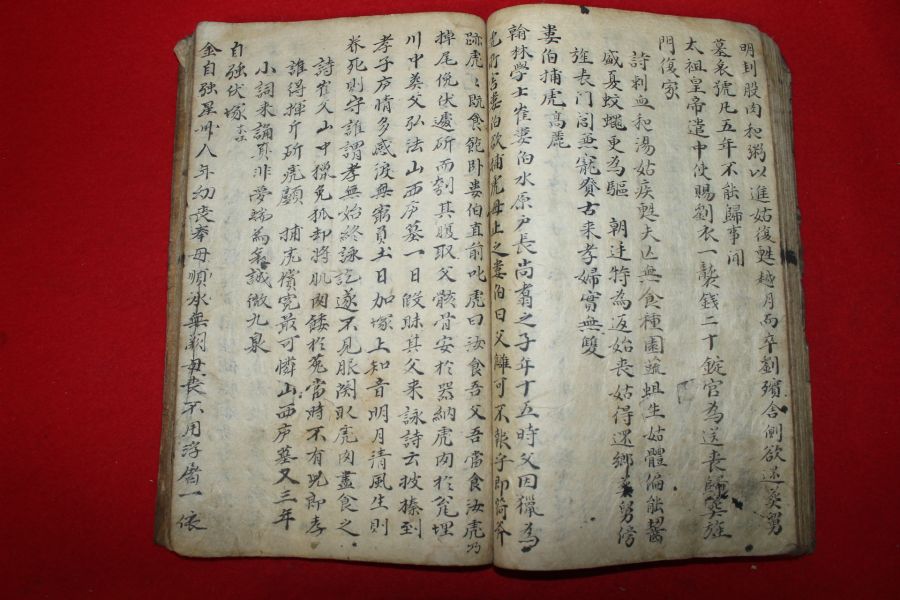 明到股肉和粥以進姑復甦越月而卒劉殯舍側欲還葬舅
墓哀號凡五年不能歸事聞
太祖皇帝遣中使賜劉衣一襲錢二十錠官為送喪歸葬旌
門復家
詩刺血和湯姑疾甦大凶無食種園蔬蛆生姑體偏能齧
盛夏蚊蠅更為驅 朝廷特為返姑喪姑得还鄉葬舅傍
旌表门閭兼寵賚古来孝婦實無雙
婁伯捕虎高麗
翰林學士崔婁伯水原戶長尚翥之子年十五時父因獵為
虎所害婁伯欲捕虎母止之婁伯曰父讎可不報乎即荷斧
跡虎〻既食飽卧婁伯直前叱虎曰汝食吾父吾當食汝虎乃
掉尾俛伏遽斫而刳其腹取父骸骨安於器納虎肉於瓮埋
川中葬父弘法山西庐墓一日假眛其父来詠詩云披榛到
孝子庐情多感淚無窮負土日加塚上知音明月清風生則
养死則守誰謂孝無始終詠訖遂不見服闋取虎肉盡食之
詩崔父山中獵兔狐却將肌肉餧於菟當時不有兒郎孝
誰得揮斤斫虎顱 捕虎償寃最可憐山西庐墓又三年
小詞来誦真非夢端為哀誠徹九泉
自強伏塚
金自強星州人年幼喪奉母順承無闕母喪不用浮屠一依